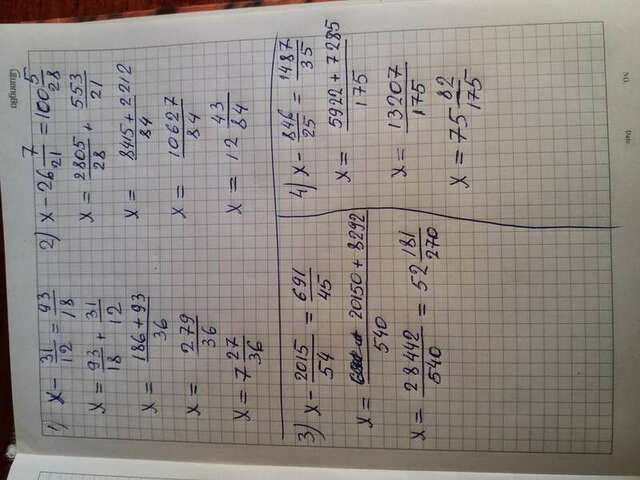 Guangbo
1) x - 31/12 = 93/18
x = 93/18 + 31/12
x = 186 + 93/36
x = 279/36
x = 7 27/36
2) x - 26 7/21 = 100 5/28
x = 2805/28 + 553/21
x = 8415 + 2212/84
x = 10627/84
x = 12 43/84
3) x - 2015/54 = 691/45
x = 20150 + 8292/540
x = 28442/540 = 52 181/270
4) x - 846/25 = 1487/35
x = 5922 + 7285/175
x = 13207/175
x = 75 82/175
NO.
Date